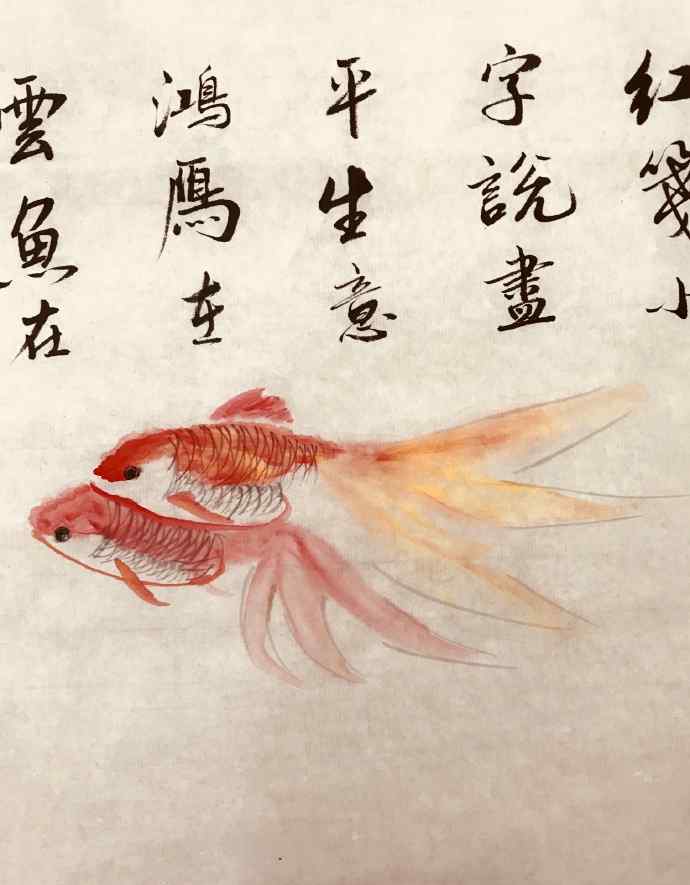 紅箋小
字說盡
平生意
鴻鴈在
雲魚在